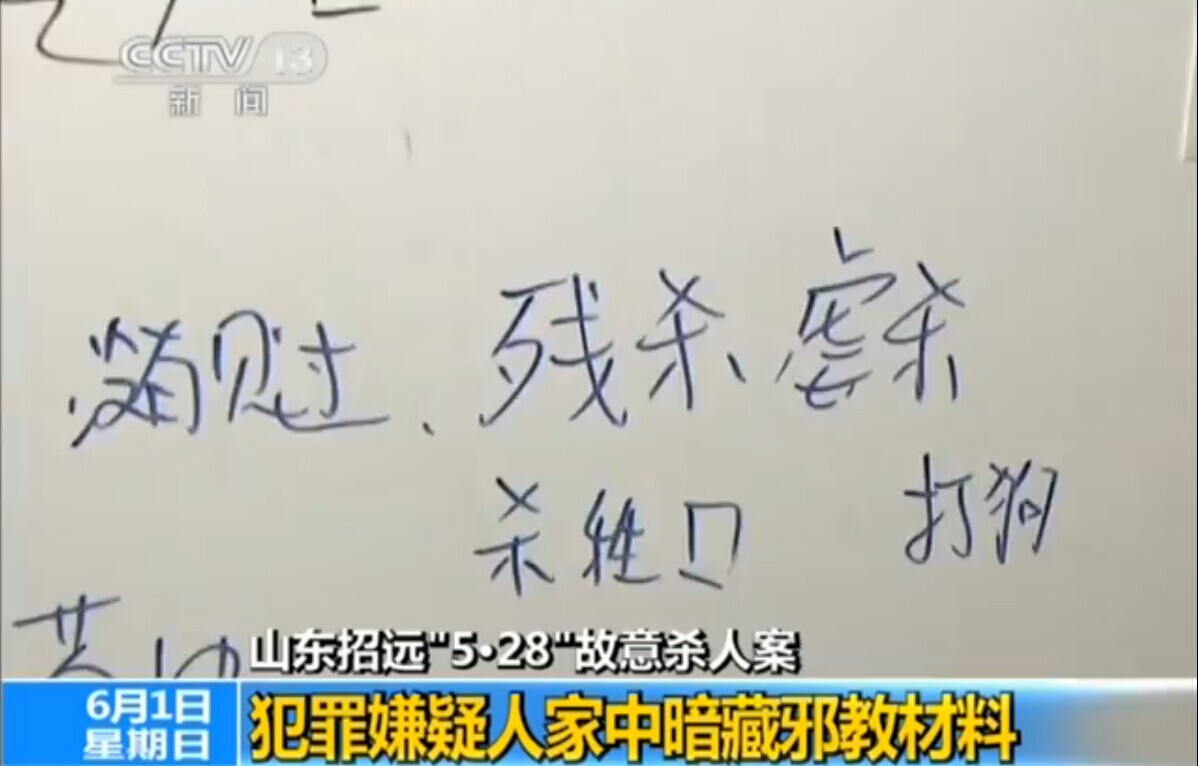 CCTV 13
新闻
没有见过、残杀、虐杀
杀牲口 打狗
山东招远"5·28"故意杀人案
6月1日
星期日
犯罪嫌疑人家中暗藏邪教材料